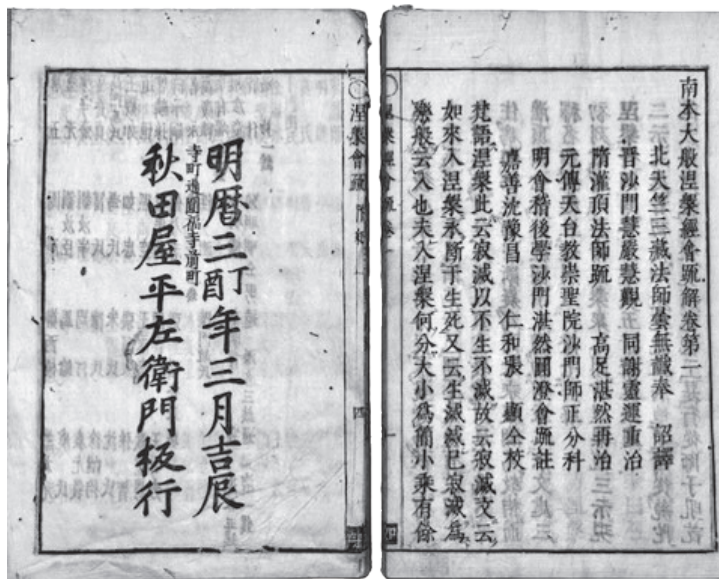 南本大般涅槃經會疏解卷第一
北天竺三藏法師曇無讖奉 詔譯
晉沙門慧嚴慧觀 同謝靈運重治
隋灌頂法師疏 高足湛然再治
元傳天台教崇聖院沙門師正分科
明會稽後學沙門湛然圓澄會疏註
嘉善沈豫昌 仁和張 顒仝校
梵語涅槃此云寂滅以不生不滅故云寂滅文云
如來入涅槃永斷于生死又云生滅滅已寂滅為
樂般云入也夫入涅槃何分大小為簡小乘有餘
涅槃會疏
四
明曆三丁酉年三月吉辰
寺町通圓福寺前町
秋田屋平左衛門板行